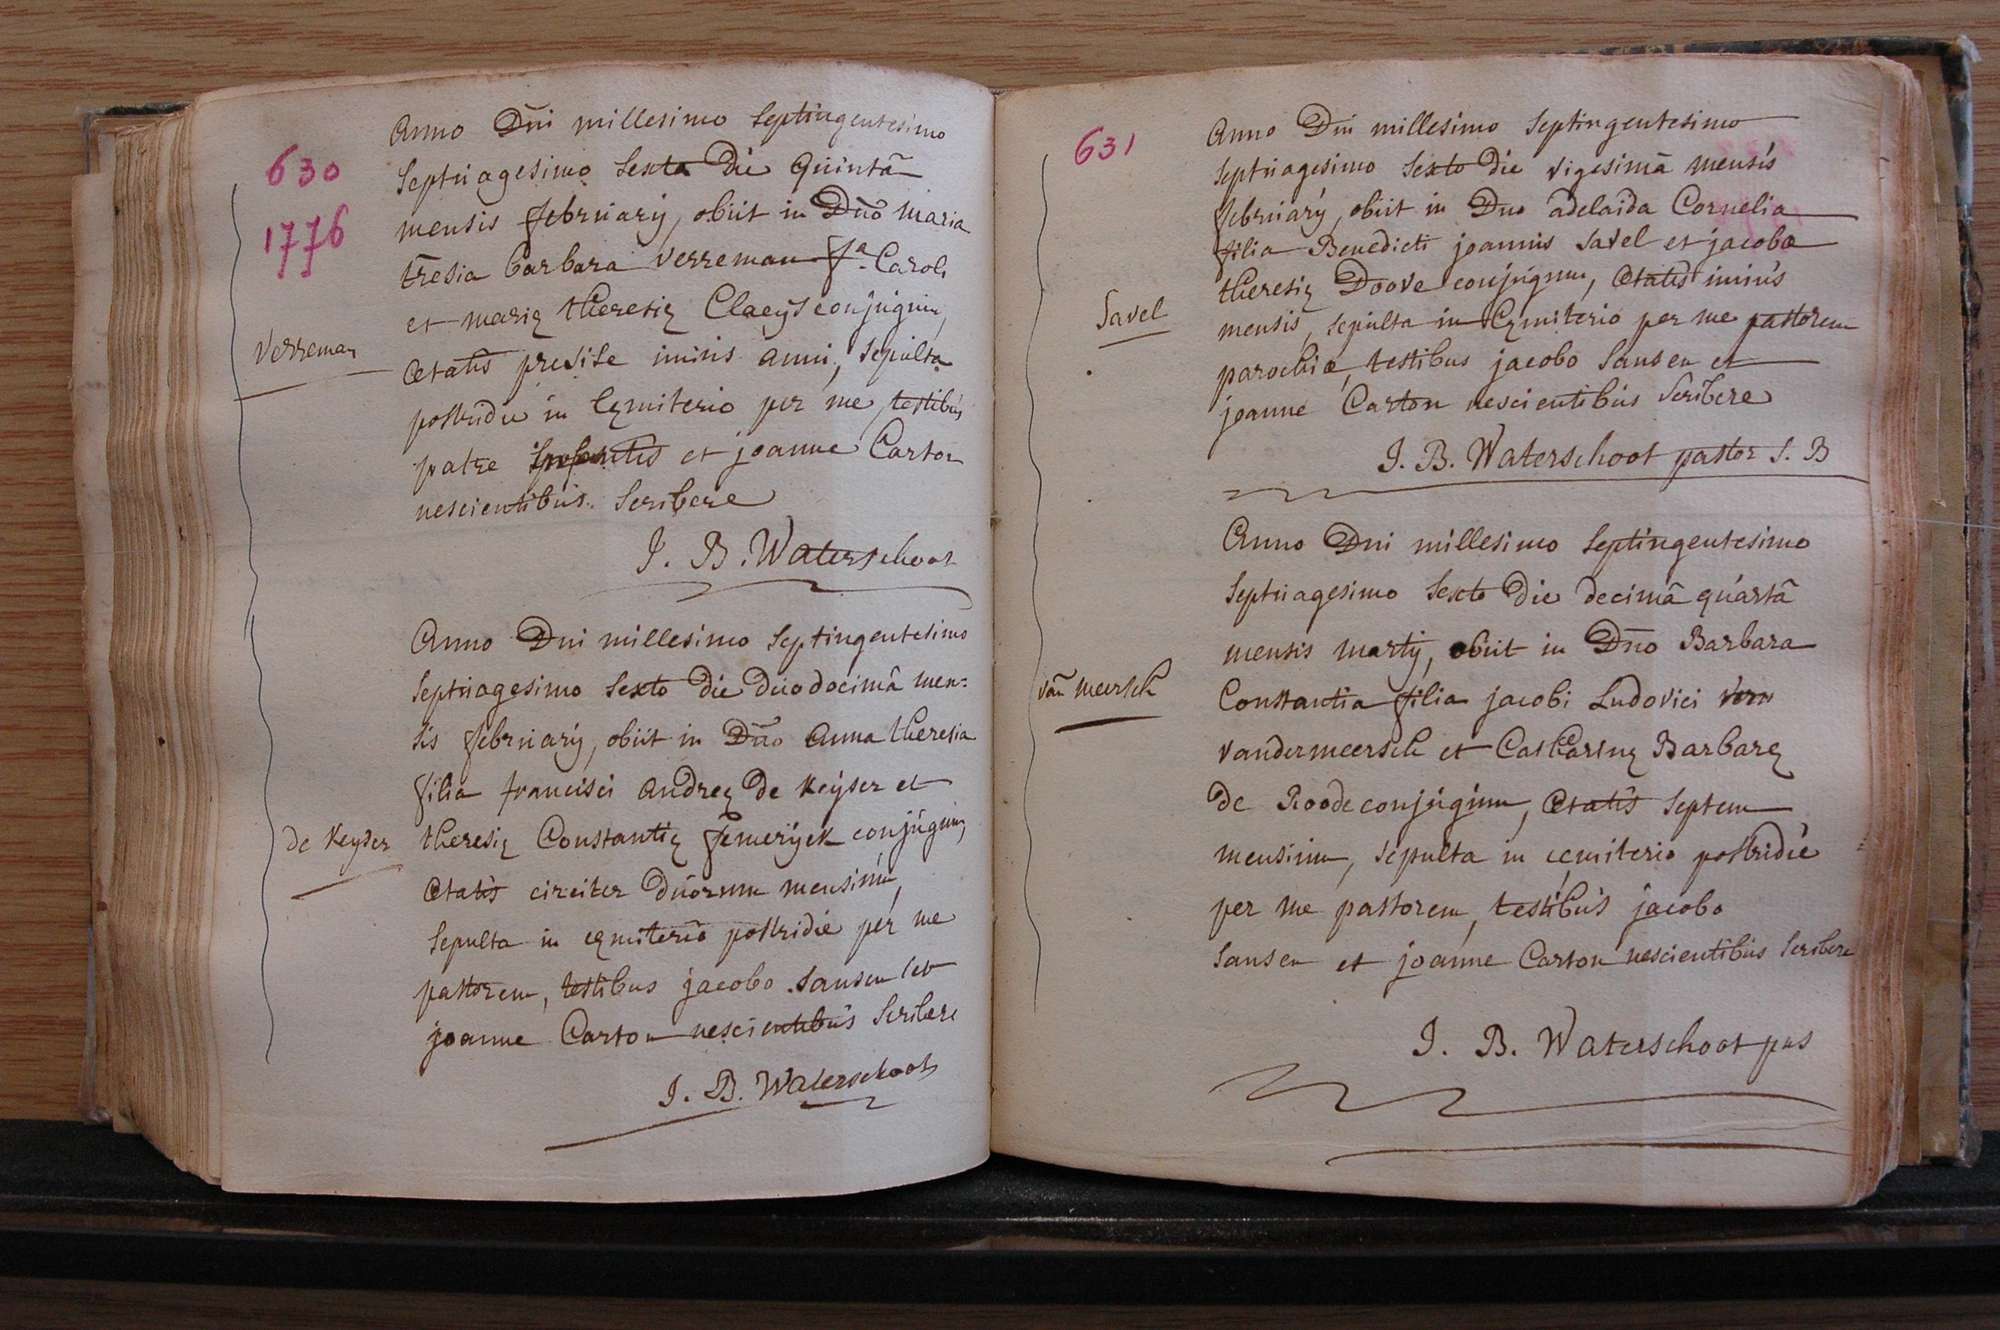 630
1776
Anno Dni millesimo septingentesimo
septuagesimo sexto die quintâ
mensis february, obiit in Dno maria
tresia barbara verreman fa. Caroli
et marię theresię Claeijs conjugum,
Verreman
Ætatis precise unius anni, sepulta
postridie in Cęmiterio per me, testibus
patre et joanne Carton
nescientibus scribere
J. B. Waterschoot
Anno Dni millesimo septingentesimo
septuagesimo sexto die duodocimâ men=
sis february, obiit in Dno Anna theresia
filia francisci Andreę de Keyser et
de Keyser
theresię Constantię Femerijck conjugum,
Ætatis circiter duorum mensium,
sepulta in cęmiterio postridie per me
pastorem, testibus jacobo Sansen et
joanne Carton nescientibus scribere
J. B. Waterschoot
631
Anno Dni millesimo septingentesimo
septuagesimo sexto die vigesimâ mensis
february, obiit in Dno adelaida Cornelia
filia Benedicti joannis Savel et jacoba
theresię Doove conjugum, Ætatis unius
Savel
mensis, sepulta in Cęmiterio per me pastorem
parochiæ, testibus jacobo Sansen et
joanne Carton nescientibus scribere
J. B. Waterschoot pastor S. B
Anno Dni millesimo septingentesimo
septuagesimo sexto die decimâ quartâ
mensis martij, obiit in Dno Barbara
van meersch
Constantia filia jacobi Ludovici
vandermeersch et Catharinę Barbarę
de Roode conjugum, Ætatis septem
mensium, sepulta in cęmiterio postridie
per me pastorem, testibus jacobo
Sansen et joanne Carton nescientibus scribere
J. B. Waterschoot pas